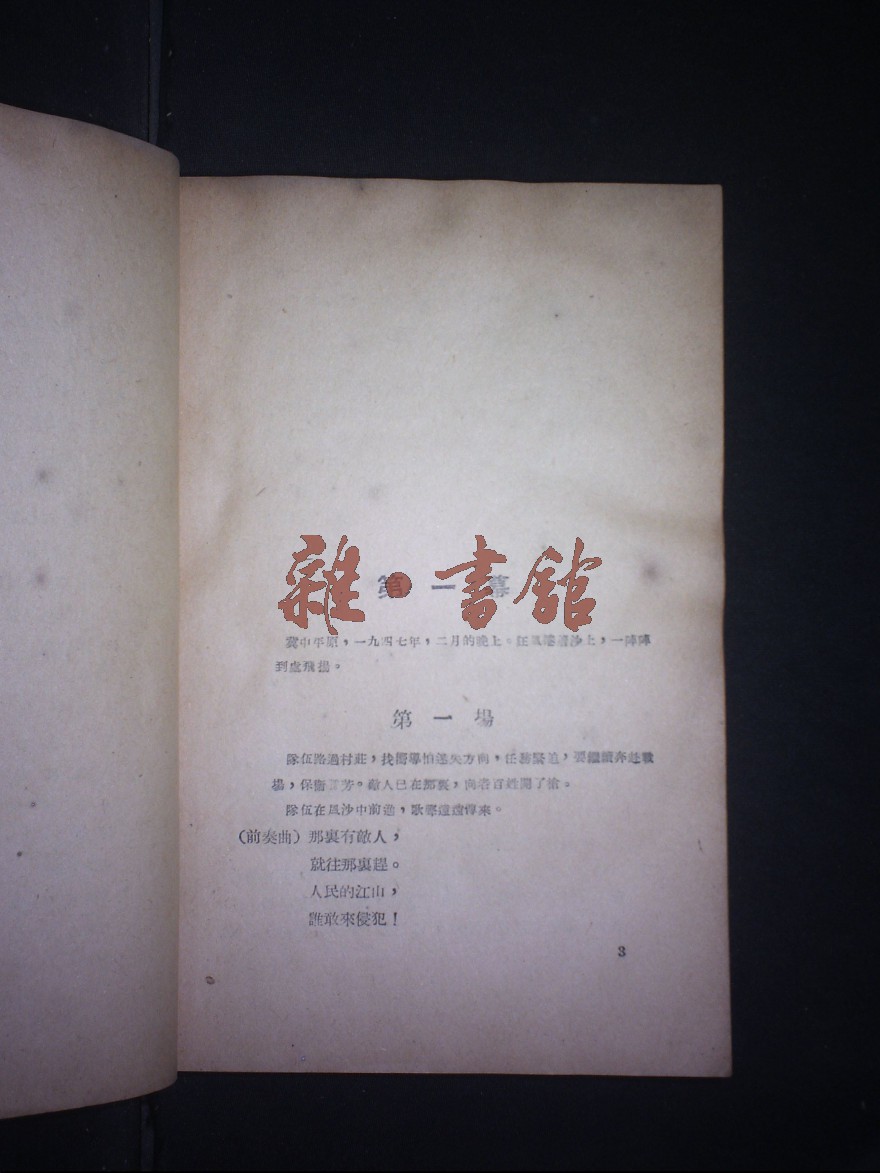 雜·書館
第一幕
冀中平原,一九四七年,二月的晚上。狂風捲着沙土,一陣陣
到處飛揚。
第一場
隊伍路過村莊,找嚮導怕迷失方向,任務緊迫,要繼續奔赴戰
場,保衛。敵人已在那裏,向老百姓開了槍。
隊伍在風沙中前進,歌聲遠遠傳來。
(前奏曲)那裏有敵人,
就往那裏趕。
人民的江山,
誰敢來侵犯!
3